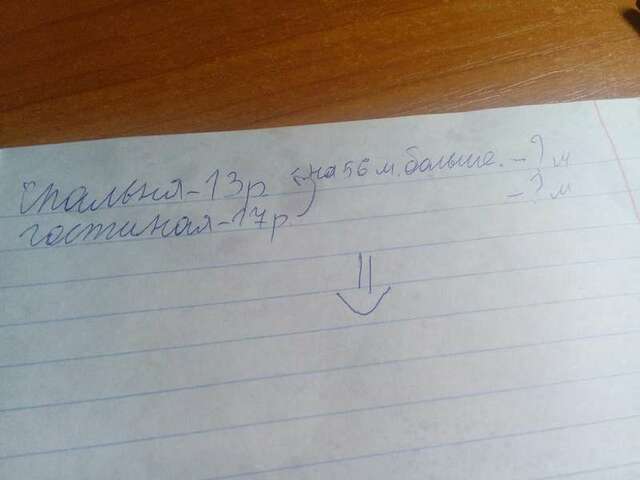 Спальня-13р. на 56 м. больше. -? м
гостиная-17р. -? м